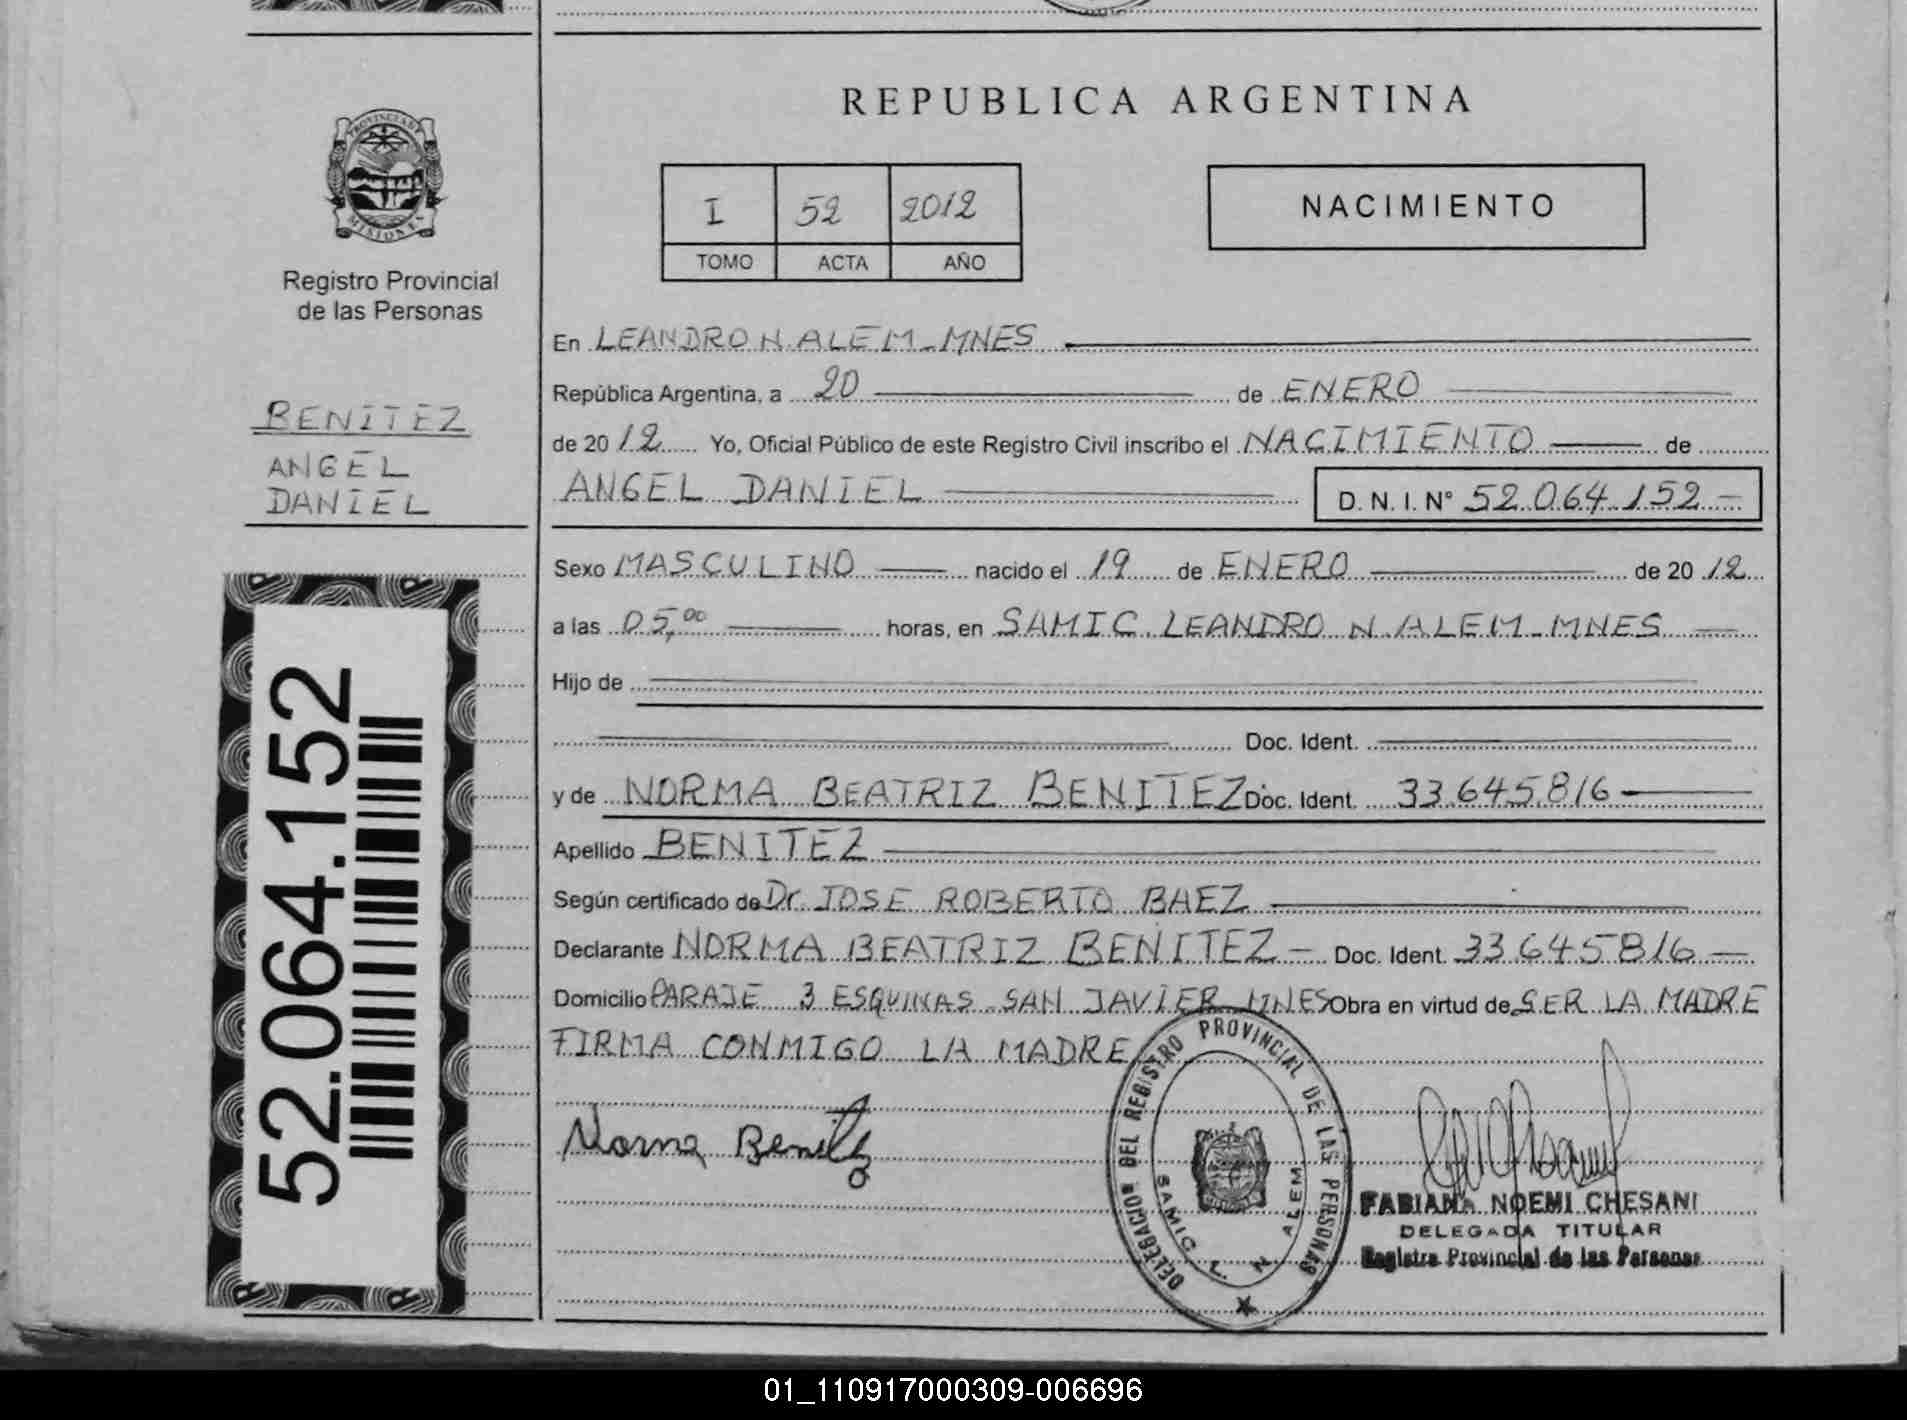 REPUBLICA ARGENTINA
PROVINCIA DE
MISIONES
Registro Provincial
de las Personas
I 52 2012
TOMO ACTA AÑO
NACIMIENTO
BENITEZ
ANGEL
DANIEL
En LEANDRO N. ALEM - MNES
República Argentina, a 20 de ENERO
de 2012 Yo, Oficial Público de este Registro Civil inscribo el NACIMIENTO de
ANGEL DANIEL D. N. I. N° 52.064.152.-
Sexo MASCULINO nacido el 19 de ENERO de 2012
a las 05,00 horas, en SAMIC LEANDRO N. ALEM - MNES
Hijo de
Doc. Ident.
y de NORMA BEATRIZ BENITEZ Doc. Ident. 33.645.816
Apellido BENITEZ
Según certificado de Dr. JOSE ROBERTO BAEZ
Declarante NORMA BEATRIZ BENITEZ - Doc. Ident. 33.645.816
Domicilio PARAJE 3 ESQUINAS SAN JAVIER MNES Obra en virtud de SER LA MADRE
FIRMA CONMIGO LA MADRE
Norma Benitez
DELEGACION DEL REGISTRO PROVINCIAL DE LAS PERSONAS
SAMIC L. N. ALEM
FABIANA NOEMI CHESANI
DELEGADA TITULAR
Registro Provincial de las Personas
52.064.152
01_110917000309-006696